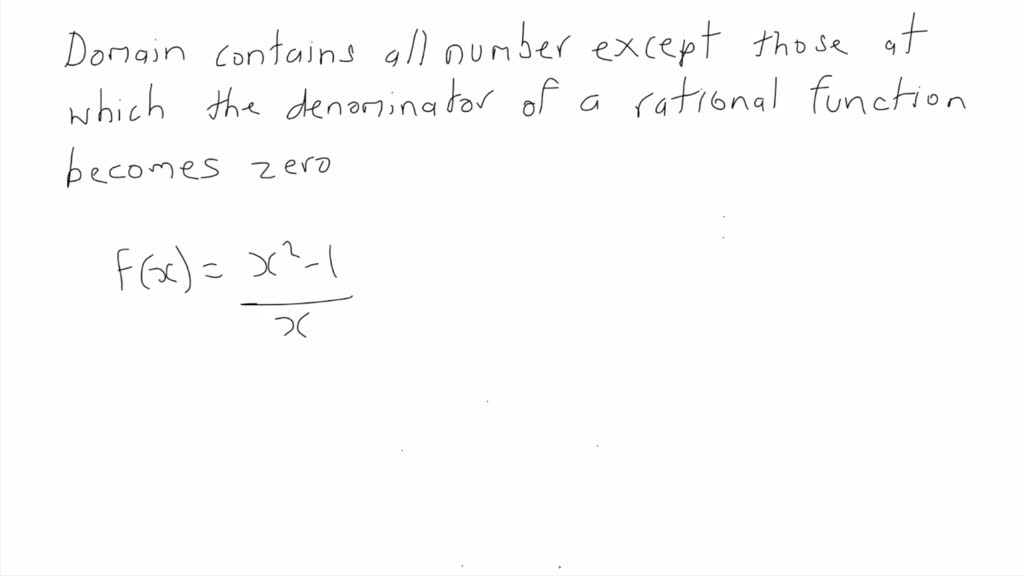 Domain contains all number except those at
which the denominator of a rational function
becomes zero
F(x) = x²-1
x